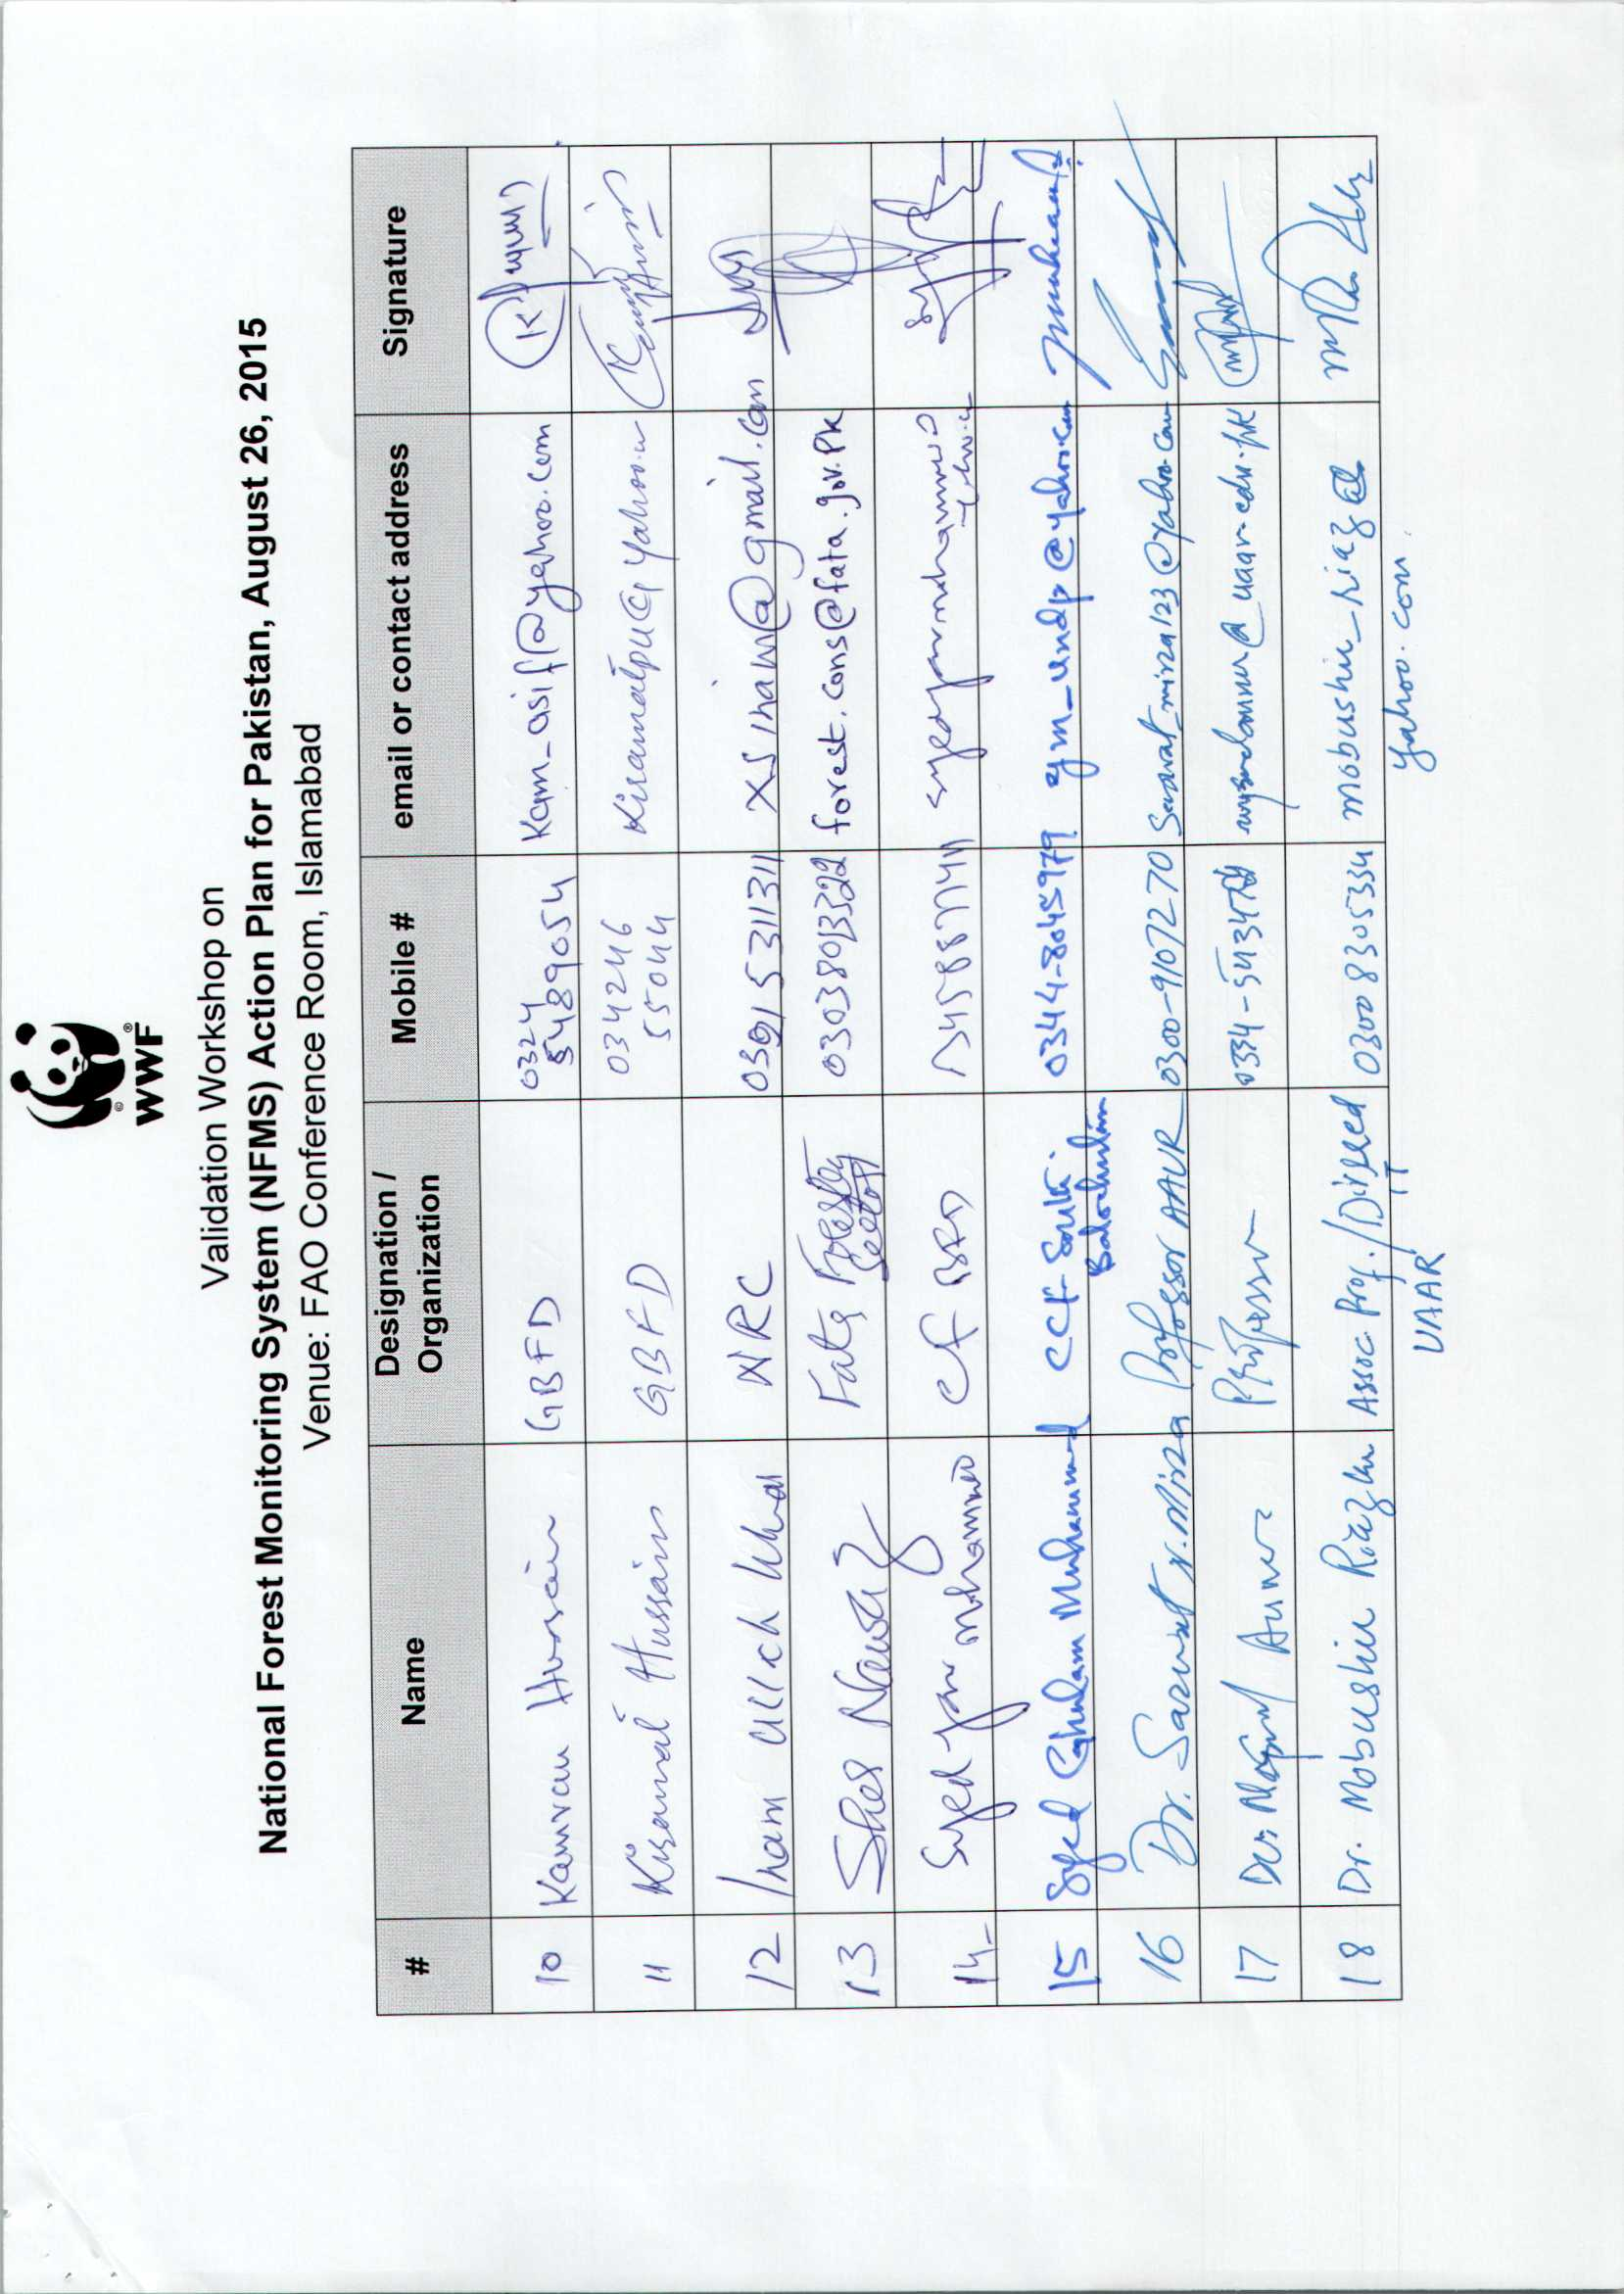 WWF
Validation Workshop on
National Forest Monitoring System (NFMS) Action Plan for Pakistan, August 26, 2015
Venue: FAO Conference Room, Islamabad
# Name Designation / Organization Mobile # email or contact address Signature
10 Kamran Hussain GBFD 0324 5489054 Kam_asif@yahoo.com
11 Kiramat Hussain GBFD 0342446 55044
12 Inam Ullah Khan NRC 03015311311 xsinam@gmail.com
13 Sher Nawaz Fata Forestry Sector 03038013322 forest.cons@fata.gov.pk
14- Syed yar muhammad CF
15 Syed Ghulam Muhammad CCF South Balochistan 0344-8045979 gm_undp@yahoo.com
16 Dr. Sarwat N. Mirza Professor AAUR 0300-9107270 Sarwat_mirza123@yahoo.com
17 Anwar Professor
18 Dr. Mobushir Riaz Khan Assoc. Prof./Director IT UAAR 03008305334 mobushir_riaz@ yahoo.com